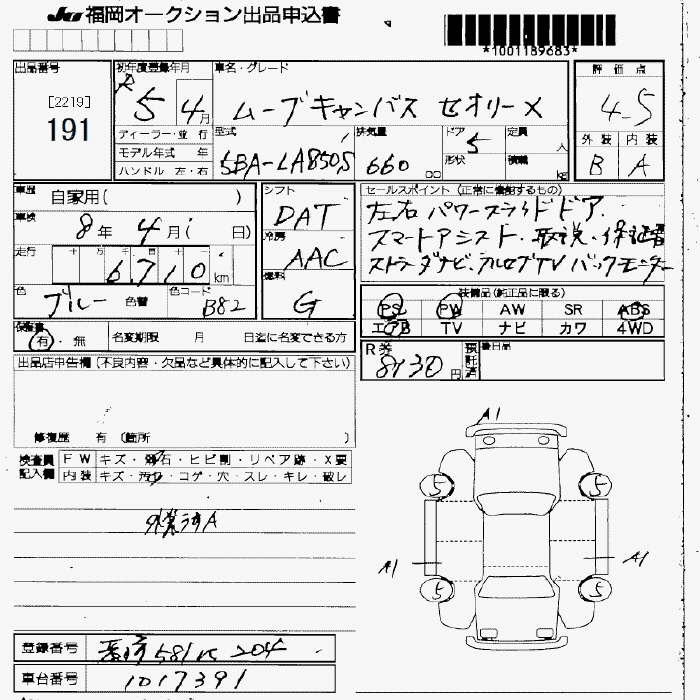 JU 福岡オークション出品申込書
*1001189683*
出品番号
[2219]
191
初年度登録年月
R5 4月
ディーラー・並行
モデル年式 年
ハンドル 左・右
車名・グレード
ムーブキャンバス セオリーX
型式
5BA-LA850S
排気量
660 cc
ドア
5
形状
定員
人
積載
kg
評価点
4.5
外装 内装
B A
車歴
自家用( )
車検
8年 4月( 日)
走行
十 万 千 百 十
6710 km
色
ブルー
色替
色コード
B82
シフト
DAT
冷房
AAC
燃料
G
セールスポイント (正常に機能するもの)
左右パワースライドドア.
スマートアシスト・取説・保証書
ナビ フルセグTV バックモニター
装備品(純正品に限る)
PS PW AW SR ABS
エアB TV ナビ カワ 4WD
保証書
有・無
名変期限 月 日迄に名変できる方
R券
8730円
預託済
後日品
出品店申告欄(不良内容・欠品など具体的に記入して下さい)
修復歴 有 (箇所 )
検査員
記入欄
FW キズ・飛石・ヒビ割・リペア跡・X要
内装 キズ・汚れ・コゲ・穴・スレ・キレ・破レ
A1
5 5
A1 A1
5 5
登録番号
581 204
車台番号
1017391